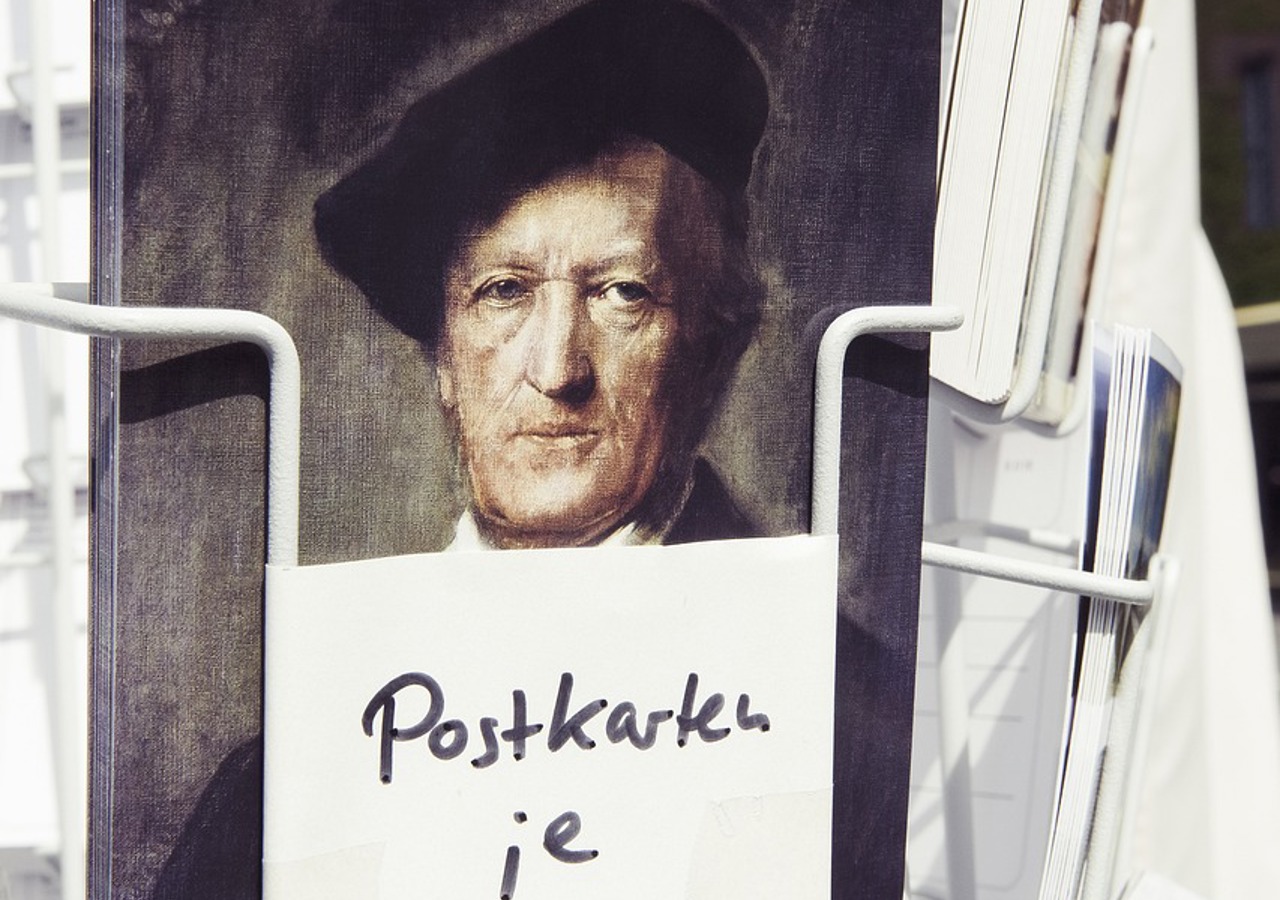 Postkarten
je